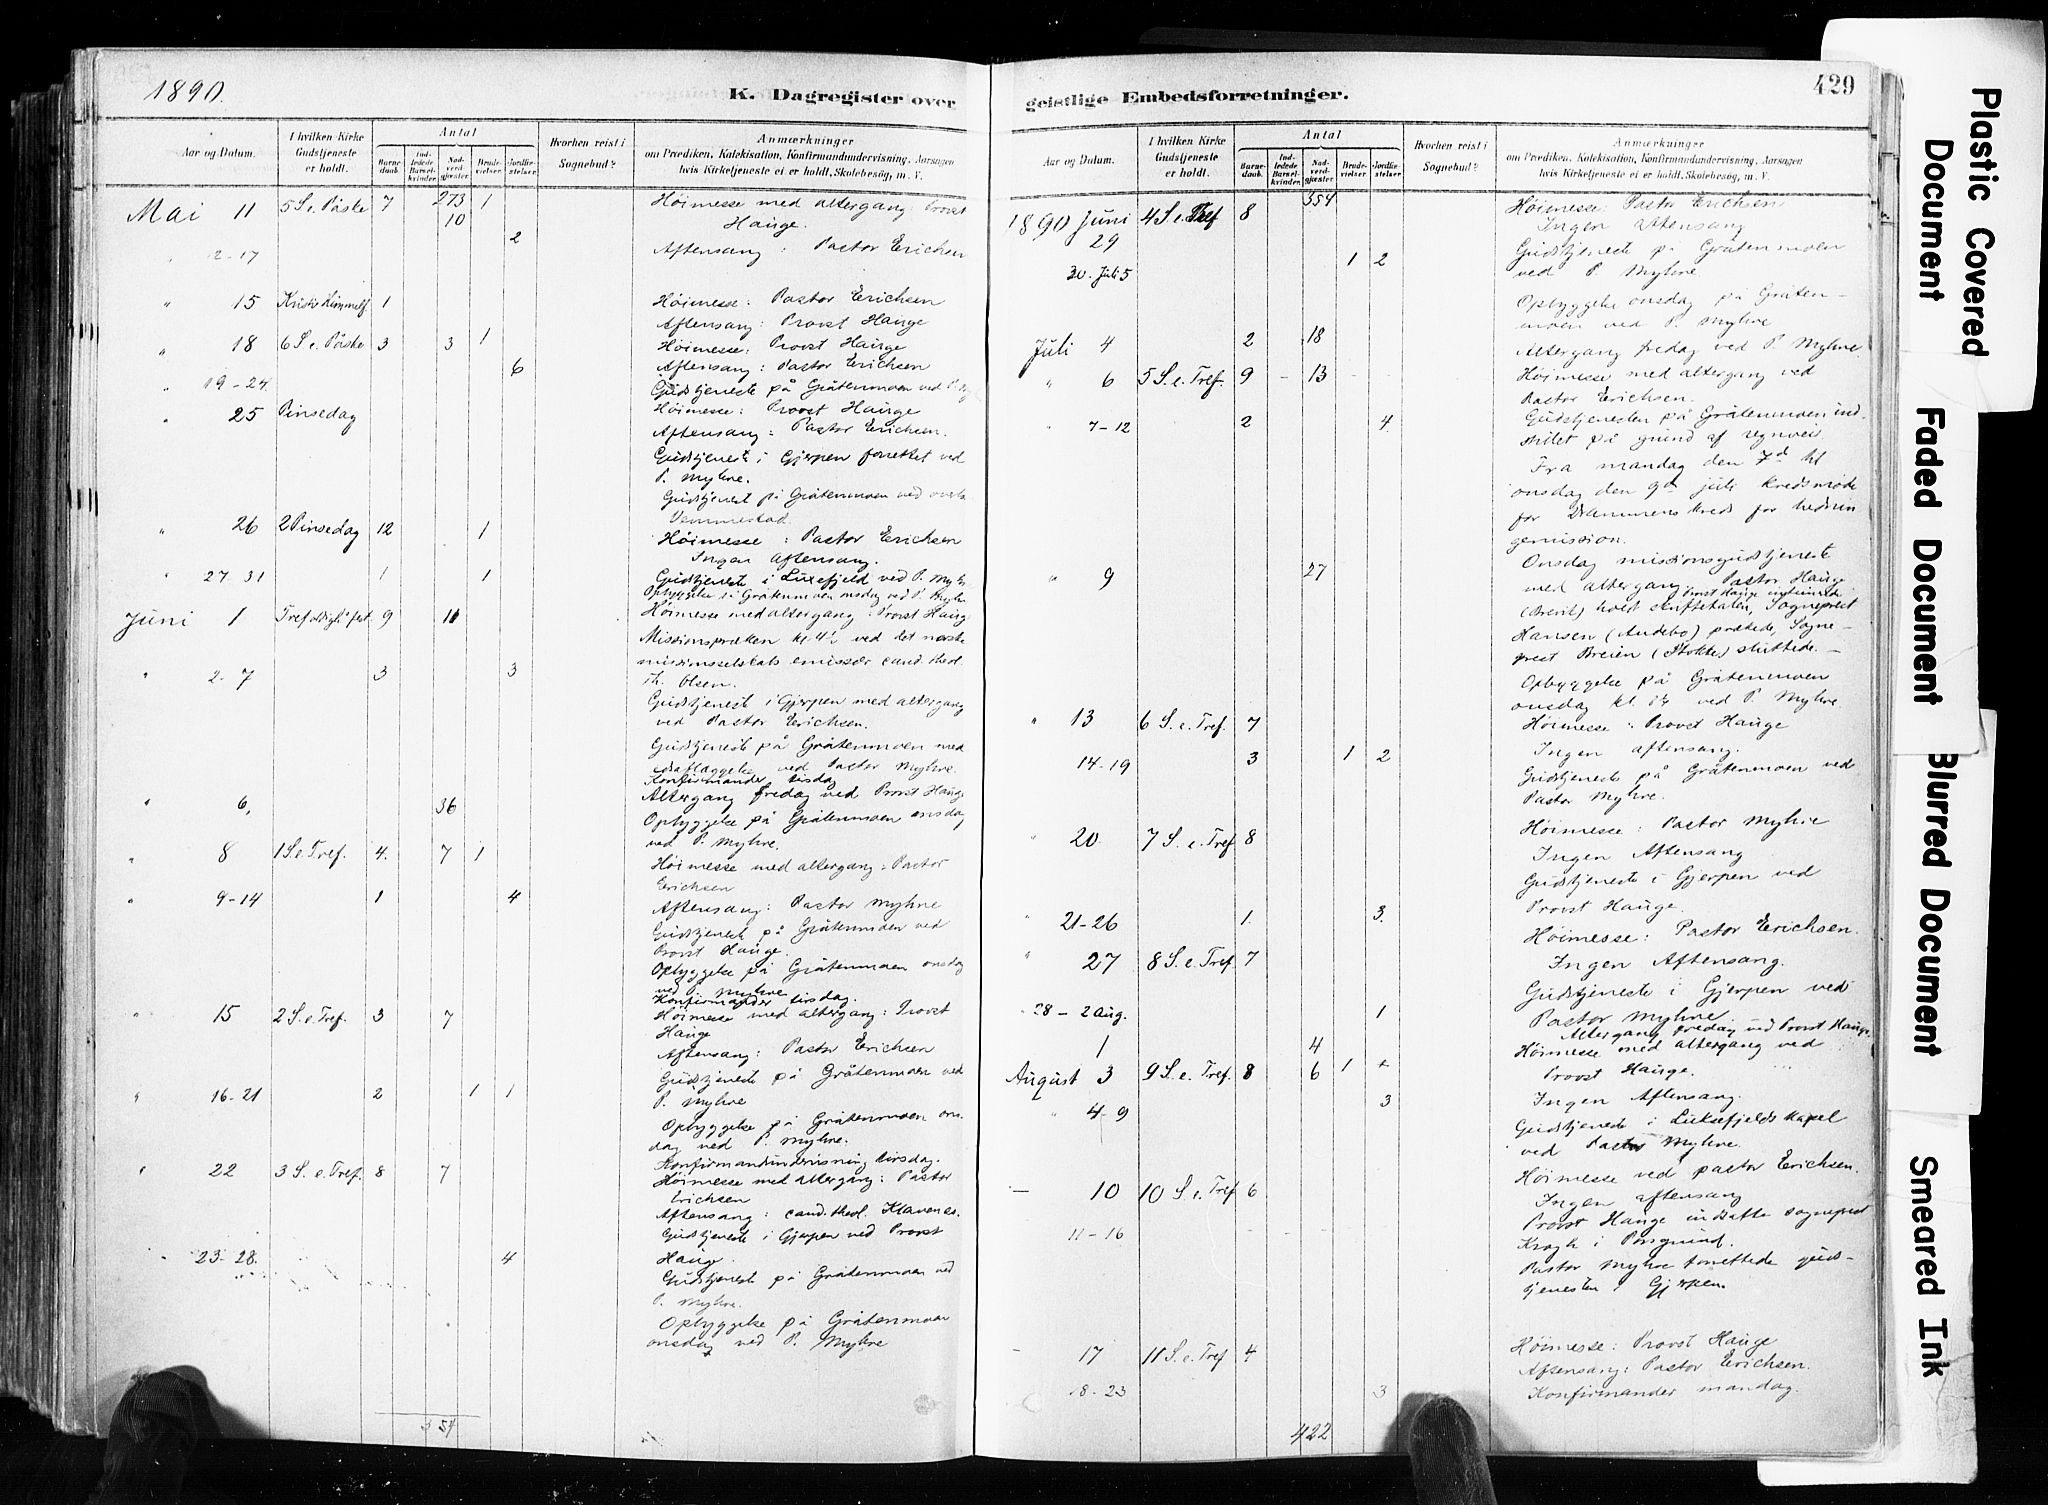 1890.
K. Dagregister over
Aar og Datum.
I hvilken Kirke Gudstjeneste er holdt.
Antal
Barnedaab.
Indledede Barselkvinder.
Nadverdgjæster.
Brudevielser.
Jordfæstelser.
Hvorhen reist i Sognebud?
Anmærkninger
om Prædiken, Katekisation, Konfirmandundervisning, Aarsagen
hvis Kirketjeneste ei er holdt, Skolebesøg, m. V.
Mai 11 5 S. e. Påske 7 273 1 Høimesse med altergang: Provst
10 Hauge.
2
" 12-17 Aftensang: Pastor Erichsen
" 15 Kristi Himmelf. 1 Høimesse: Pastor Erichsen
Aftensang: Provst Hauge
" 18 6 S. e. Påske 3 3 1 Høimesse: Provst Hauge
6 Aftensang: Pastor Erichsen
" 19-24 Gudstjeneste på Gråtenmoen ved
" 25 Pinsedag Høimesse: Provst Hauge
Aftensang: Pastor Erichsen.
Gudstjeneste i Gjerpen forrettet ved
P. Myhre.
Gudstjenest på Gråtenmoen ved
" 26 2 Pinsedag 12 1 Høimesse: Pastor Erichsen
Ingen Aftensang.
" 27-31 1 1 Gudstjeneste i Luxefjeld ved P. Myhre
Opbyggelse på Gråtenmoen onsdag ved P. Myhre
Juni 1 Trefoldigh. fest 9 11 Høimesse med altergang: Provst Hauge
Missionspræken kl. 4½ ved det norske
" 2-7 3 3 missionsselskabs emissær cand. theol.
Th. Olsen.
Gudstjenest i Gjerpen med altergang
ved Pastor Erichsen.
Gudstjeneste på Gråtenmoen med
ved Pastor Myhre.
Konfirmander tirsdag
" 6, 36 Altergang fredag ved Provst Hauge
Opbyggelse på Gråtenmoen onsdag
ved P. Myhre.
" 8 1 S. e. Tref. 4. 7 1 Høimesse med altergang: Pastor
Erichsen
" 9-14 1 4 Aftensang: Pastor Myhre
Gudstjenest på Gråtenmoen ved
Provst Hauge.
Opbyggelse på Gråtenmoen onsdag
ved P. Myhre
Konfirmander tirsdag.
" 15 2 S. e. Tref. 3 7 Høimesse med altergang: Provst
Hauge
Aftensang: Pastor Erichsen
Gudstjeneste på Gråtenmoen ved
" 16-21 2 1 1 P. Myhre
Opbyggelse på Gråtenmoen ons-
dag ved P. Myhre.
Konfirmandundervisning tirsdag.
" 22 3 S. e. Tref. 8 7 Høimesse med altergang: Pastor
Erichsen
Aftensang: cand. theol. Klavenes.
Gudstjeneste i Gjerpen ved Provst
" 23-28. 4 Hauge.
Gudstjenest på Gråtenmoen ved
P. Myhre.
Opbyggelse på Gråtenmoen
onsdag ved P. Myhre
354
geistlige Embedsforretninger.
429
Aar og Datum.
I hvilken Kirke Gudstjeneste er holdt.
Antal
Barnedaab.
Indledede Barselkvinder.
Nadverdgjæster.
Brudevielser.
Jordfæstelser.
Hvorhen reist i Sognebud?
Anmærkninger
om Prædiken, Katekisation, Konfirmandundervisning, Aarsagen
hvis Kirketjeneste ei er holdt, Skolebesøg, m. V.
1890 Juni 29 4 S. e. Tref 8 354 Høimesse: Pastor Erichsen
Ingen Aftensang
Gudstjeneste på Gråtenmoen
30-Juli 5 1 2 ved P. Myhre
Opbyggelse onsdag på Gråten-
moen ved P. Myhre
Juli 4 2 18 Altergang fredag ved P. Myhre
" 6 5 S. e. Tref. 9 - 13 Høimesse med altergang ved
Pastor Erichsen.
" 7-12 2 4 Gudstjenesten på Gråtenmoen ind-
stilet på grund af regnveir.
Fra mandag den 7d til
onsdag den 9de juli kredsmøde
for Drammens kreds for hednin
gemission.
" 9 27 Onsdag missionsgudstjeneste
med altergang. Pastor Hauge
(Brevik) holdt skriftetalen, Sogneprest
Hansen (Andebo) prækede, Sogne-
prest Breien (Stokke) sluttede. -
Opbyggelse på Gråtenmoen
onsdag kl. ved P. Myhre.
" 13 6 S. e. Tref. 7 Høimesse: Provst Hauge
Ingen aftensang.
14-19 3 1 2 Gudstjeneste på Gråtenmoen ved
Pastor Myhre.
" 20 7 S. e. Tref 8 Høimesse: Pastor Myhre
Ingen Aftensang
Gudstjeneste i Gjerpen ved
Provst Hauge.
" 21-26 1. 3.
" 27 8 S. e. Tref. 7 Høimesse: Pastor Erichsen.
Ingen Aftensang.
Gudstjeneste i Gjerpen ved
" 28-2 Aug. 1 Pastor Myhre.
1 4 Altergang fredag ved Provst Hauge.
August 3 9 S. e. Tref. 8 6 1 Høimesse med altergang ved
Provst Hauge.
" 4-9 3 Ingen Aftensang.
Gudstjeneste i Luksefjelds kapel
ved Pastor Myhre.
- 10 10 S. e. Tref 6 Høimesse ved pastor Erichsen.
Ingen aftensang
11-16 Provst Hauge indsatte sogneprest
Krogh i Porsgrund.
Pastor Myhre forrettede guds-
tjenesten i Gjerpen.
- 17 11 S. e. Tref 4 Høimesse: Provst Hauge
Aftensang: Pastor Erichsen.
18-23 3 Konfirmander mandag.
422
Plastic Covered Document
Faded Document
Blurred Document
Smeared Ink